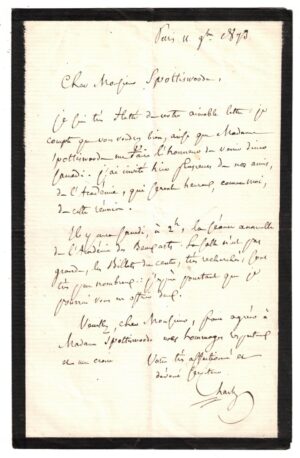 Paris 11 9bre 1873
Cher Monsieur Spottiswoode,
Je suis très flatté de votre aimable lettre, je
compte que vous voudrez bien, ainsi que Madame
Spottiswoode me faire l'honneur de venir diner
Jeudi : j'ai invité hier plusieurs de nos amis,
de l'Académie, qui seront heureux, comme moi,
de cette réunion.
Il y aura Jeudi, à 2h, la séance annuelle
de l'Académie des Beaux arts. La salle n'est pas
grande, les Billets du centre, très recherchés, sont
très peu nombreux : j'espère pourtant que je
pourrai vous en offrir deux.
Veuillez, cher Monsieur, faire agréer à
Madame Spottiswoode mes hommages respectueux
et me croire Votre très affectionné et
dévoué Confrère
Chasles